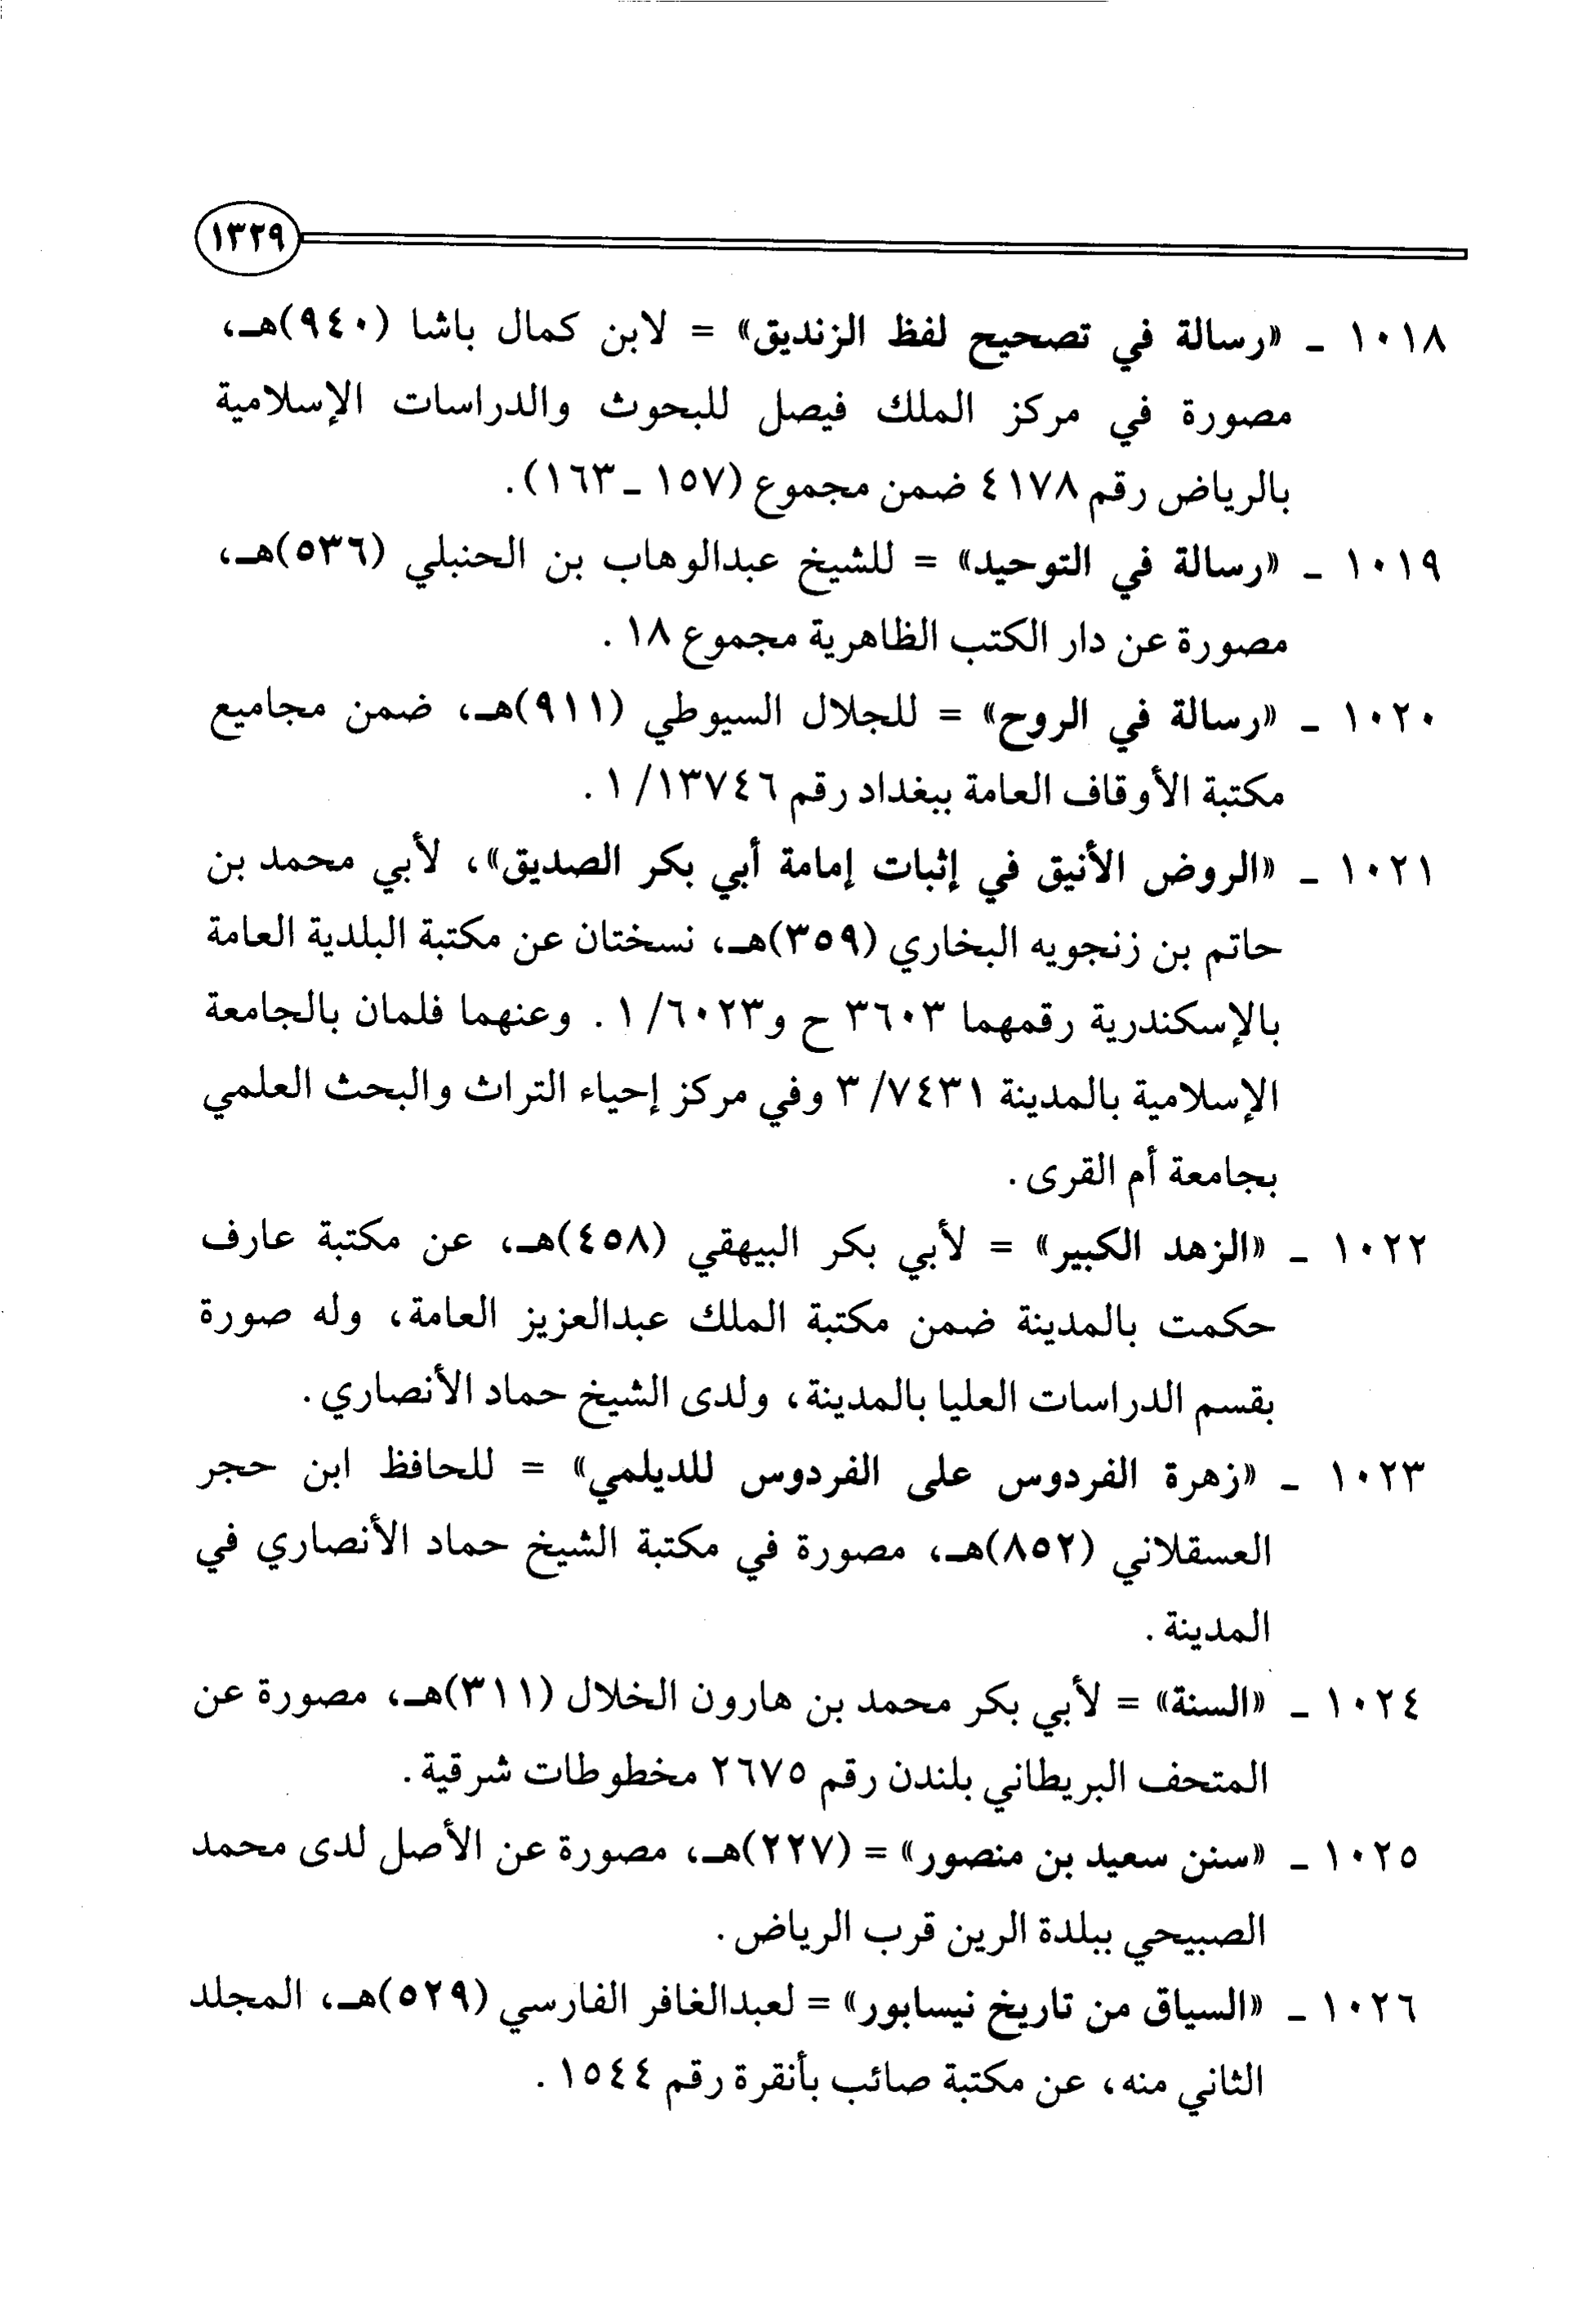 ١٣٢٩
١٠١٨ ـ «رسالة في تصحيح لفظ الزنديق» = لابن كمال باشا (٩٤٠)هـ،
مصورة في مركز الملك فيصل للبحوث والدراسات الإسلامية
بالرياض رقم ٤١٧٨ ضمن مجموع (١٥٧ ـ ١٦٣).
١٠١٩ ـ «رسالة في التوحيد» = للشيخ عبدالوهاب بن الحنبلي (٥٣٦)هـ،
مصورة عن دار الكتب الظاهرية مجموع ١٨.
١٠٢٠ ـ «رسالة في الروح» = للجلال السيوطي (٩١١)هـ، ضمن مجاميع
مكتبة الأوقاف العامة ببغداد رقم ١/١٣٧٤٦.
١٠٢١ ـ «الروض الأنيق في إثبات إمامة أبي بكر الصديق»، لأبي محمد بن
حاتم بن زنجويه البخاري (٣٥٩)هـ، نسختان عن مكتبة البلدية العامة
بالإسكندرية رقمهما ٣٦٠٣ ح و١/٦٠٢٣. وعنهما فلمان بالجامعة
الإسلامية بالمدينة ٣/٧٤٣١ وفي مركز إحياء التراث والبحث العلمي
بجامعة أم القرى.
١٠٢٢ ـ «الزهد الكبير» = لأبي بكر البيهقي (٤٥٨)هـ، عن مكتبة عارف
حكمت بالمدينة ضمن مكتبة الملك عبدالعزيز العامة، وله صورة
بقسم الدراسات العليا بالمدينة، ولدى الشيخ حماد الأنصاري.
١٠٢٣ ـ «زهرة الفردوس على الفردوس للديلمي» = للحافظ ابن حجر
العسقلاني (٨٥٢)هـ، مصورة في مكتبة الشيخ حماد الأنصاري في
المدينة.
١٠٢٤ ـ «السنة» = لأبي بكر محمد بن هارون الخلال (٣١١)هـ، مصورة عن
المتحف البريطاني بلندن رقم ٢٦٧٥ مخطوطات شرقية.
١٠٢٥ ـ «سنن سعيد بن منصور» = (٢٢٧)هـ، مصورة عن الأصل لدى محمد
الصبيحي ببلدة الرين قرب الرياض.
١٠٢٦ ـ «السياق من تاريخ نيسابور» = لعبدالغافر الفارسي (٥٢٩)هـ، المجلد
الثاني منه، عن مكتبة صائب بأنقرة رقم ١٥٤٤.